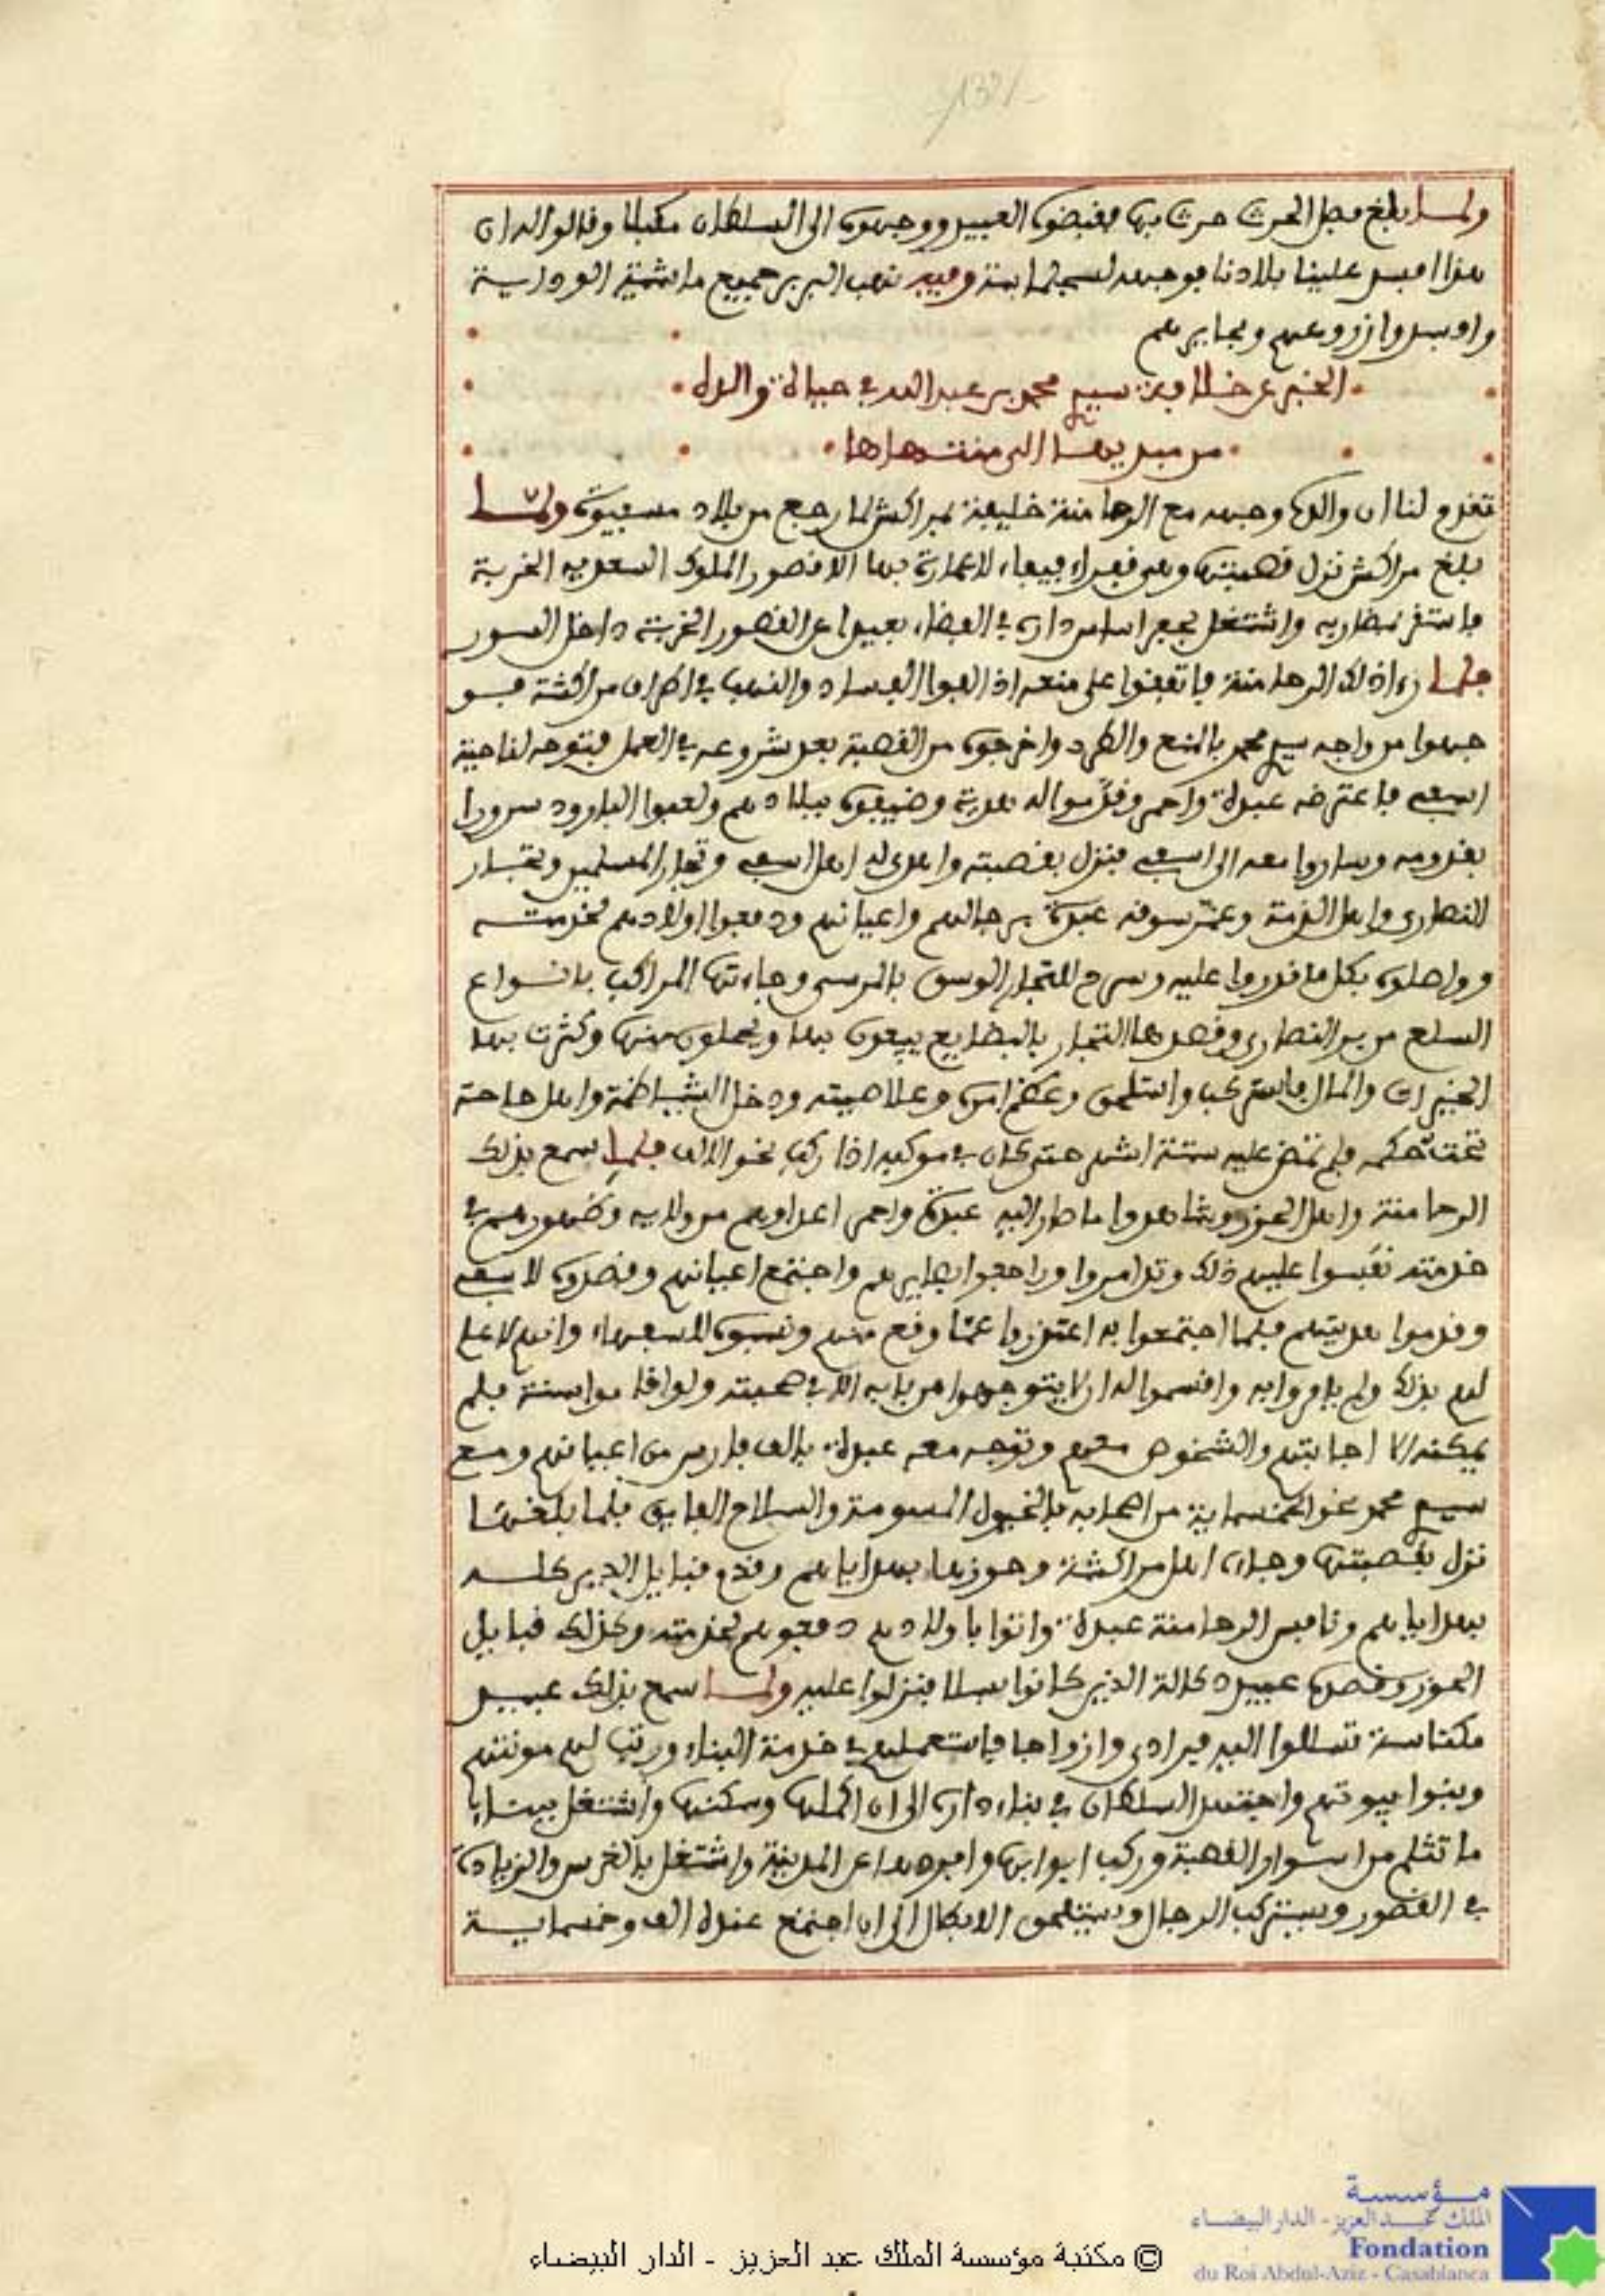 132
ولما بلغ فصل الحرث حرث بها فقبضوه العبيد ووجهوه الى السلطان مكبلا وقالوا له ان
هذا افسد علينا بلادنا فوجهه لسجلماسة وفيه نهب البربر جميع ماشية الوداية
وافسدوا زروعهم وبحايرهم
الخبر عن خلافة سيدي محمد بن عبد الله في حياة والده
من مبديها الى منتهاها
تقدم لنا ان والده وجهه مع الرحامنة خليفة بمراكش لما رجع من بلاد مسفيوة ولما
بلغ مراكش نزل قصبتها وهي قفراء فيفاء لا عمارة بها الا قصور الملوك السعديه الخربة
فاستقر بضاربه واشتغل بحفر اساس داره في الفضاء بعيدا عن القصور الخربة داخل السور
فلما رءا ذلك الرحامنة فاتفقوا على منعه اذ الفوا الفساد والنهب في اطراف مراكشة فو
جهوا من واجه سيدي محمد بالمنع والطرد واخرجوه من القصبة بعد شروعه في العمل فتوجه لناحية
اسفي فاعترضه عبدة واحمر وقدموا له هدية وضيفوه ببلادهم ولعبوا البارود سرورا
بقدومه وساروا معه الى اسفي فنزل بقصبته واهدى له اهل اسفي وتجار المسلمين وتجار
النصارى واهل الذمة وعمر سوقه عبدة برجالهم واعيانهم ودفعوا اولادهم لخدمته
وواصلوه بكل ما قدروا عليه وسرح للتجار الوسق بالمرسى وجاءتها المراكب بانواع
السلع من بر النصارى وقصدها التجار بالبضايع يبيعون بها ويحملون منها وكثرت بها
الخيرات والمال فاستركب واستلحق وعظم امره وعلا صيته ودخل الشياظمة واهل حاحة
تحت حكمه فلم تمض عليه ستة اشهر حتى كان في موكبه اذا ركب نحو الالف فلما سمع بذلك
الرحامنة واهل الحوز وشاهدوا ما صار اليه عبدة واحمر اعداوهم من ولايه وظهورهم في
خدمته نفسوا عليهم ذلك وتدامروا وراجعوا بصايرهم واجتمع اعيانهم وقصدوه لاسفي
وقدموا هديتهم فلما اجتمعوا به اعتذروا عما وقع منهم ونسبوه للسفهاء وانهم لا علم
لهم بذلك ولم يامروا به واقسموا له ان لا يتوجهوا من بابه الا في صحبته ولو اقاموا سنة فلم
يمكنه الا اجابتهم والشخوص معهم وتوجه معه عبدة بالف فارس من اعيانهم ومع
سيدي محمد نحو الخمسماية من اصحابه بالخيول المسومة والسلاح الفايق فلما بلغها
نزل بقصبتها وجاءه اهل مراكشة وحوزها بهداياهم وقدم قبايل الدير كله
بهداياهم ونافس الرحامنة عبدة واتوا باولادهم دفعوهم لخدمته وكذلك قبايل
الحوز وقصده عبيد دكالة الذين كانوا بسلا فنزلوا عليه ولما سمع بذلك عبيد
مكناسة تسللوا اليه فرادى وازواجا فاستعملهم في خدمة البناء ورتب لهم مونتهم
وبنوا بيوتهم واجتهد السلطان في بناء داره الى ان اكملها وسكنها واشتغل ببناء
ما تثلم من اسوار القصبة وركب ابوابها وافردها عن المدينة واشتغل بالغرس والزيادة
في القصور ويستركب الرجال ويستلحق الابطال الى ان اجتمع عنده الف وخمسماية
© مكتبة مؤسسة الملك عبد العزيز - الدار البيضاء
مؤسسة
الملك عبد العزيز - الدار البيضاء
Fondation
du Roi Abdul-Aziz - Casablanca